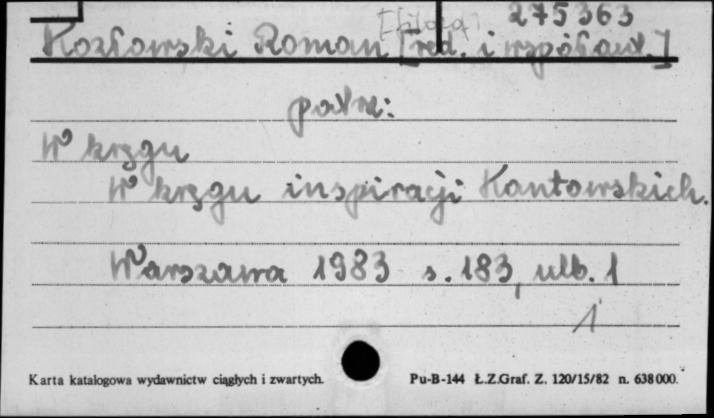 [filozof] 275363
Kozłowski Roman [red. i współaut.]
patrz:
W kręgu
W kręgu inspiracji Kantowskich.
Warszawa 1983 s. 183, nlb. 1
1
Karta katalogowa wydawnictw ciągłych i zwartych. Pu-B-144 Ł.Z.Graf. Z. 120/15/82 n. 638000.